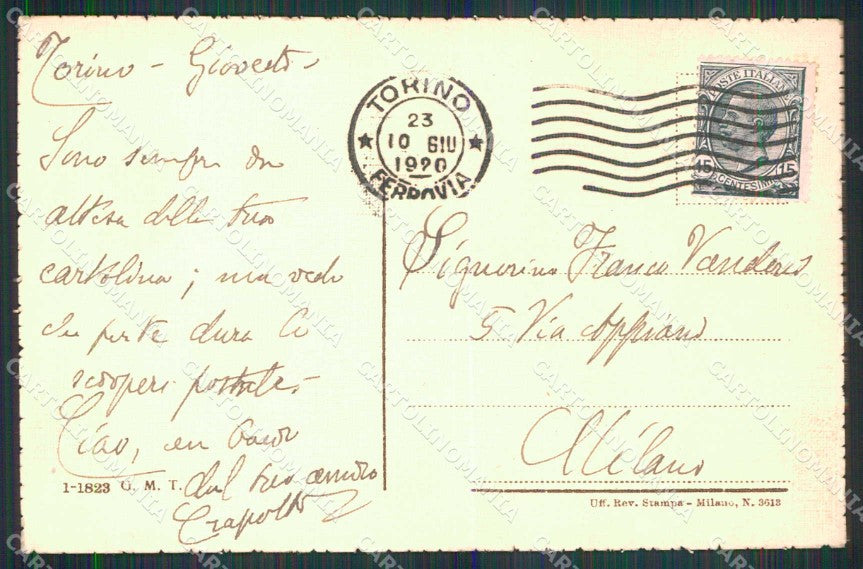 Torino - Giovedì -
Sono sempre in
attesa della tua
cartolina; ma vedo
che forte dura lo
sciopero postale -
Ciao, un bacio
dal tuo amico
1-1823 G. M. T.
TORINO
23
10 GIU
1920
FERROVIA
POSTE ITALIANE
15 15
CENTESIMI
Signorina Franca
5 Via Appiani
Milano
Uff. Rev. Stampa - Milano, N. 3613
CARTOLINOMANIA